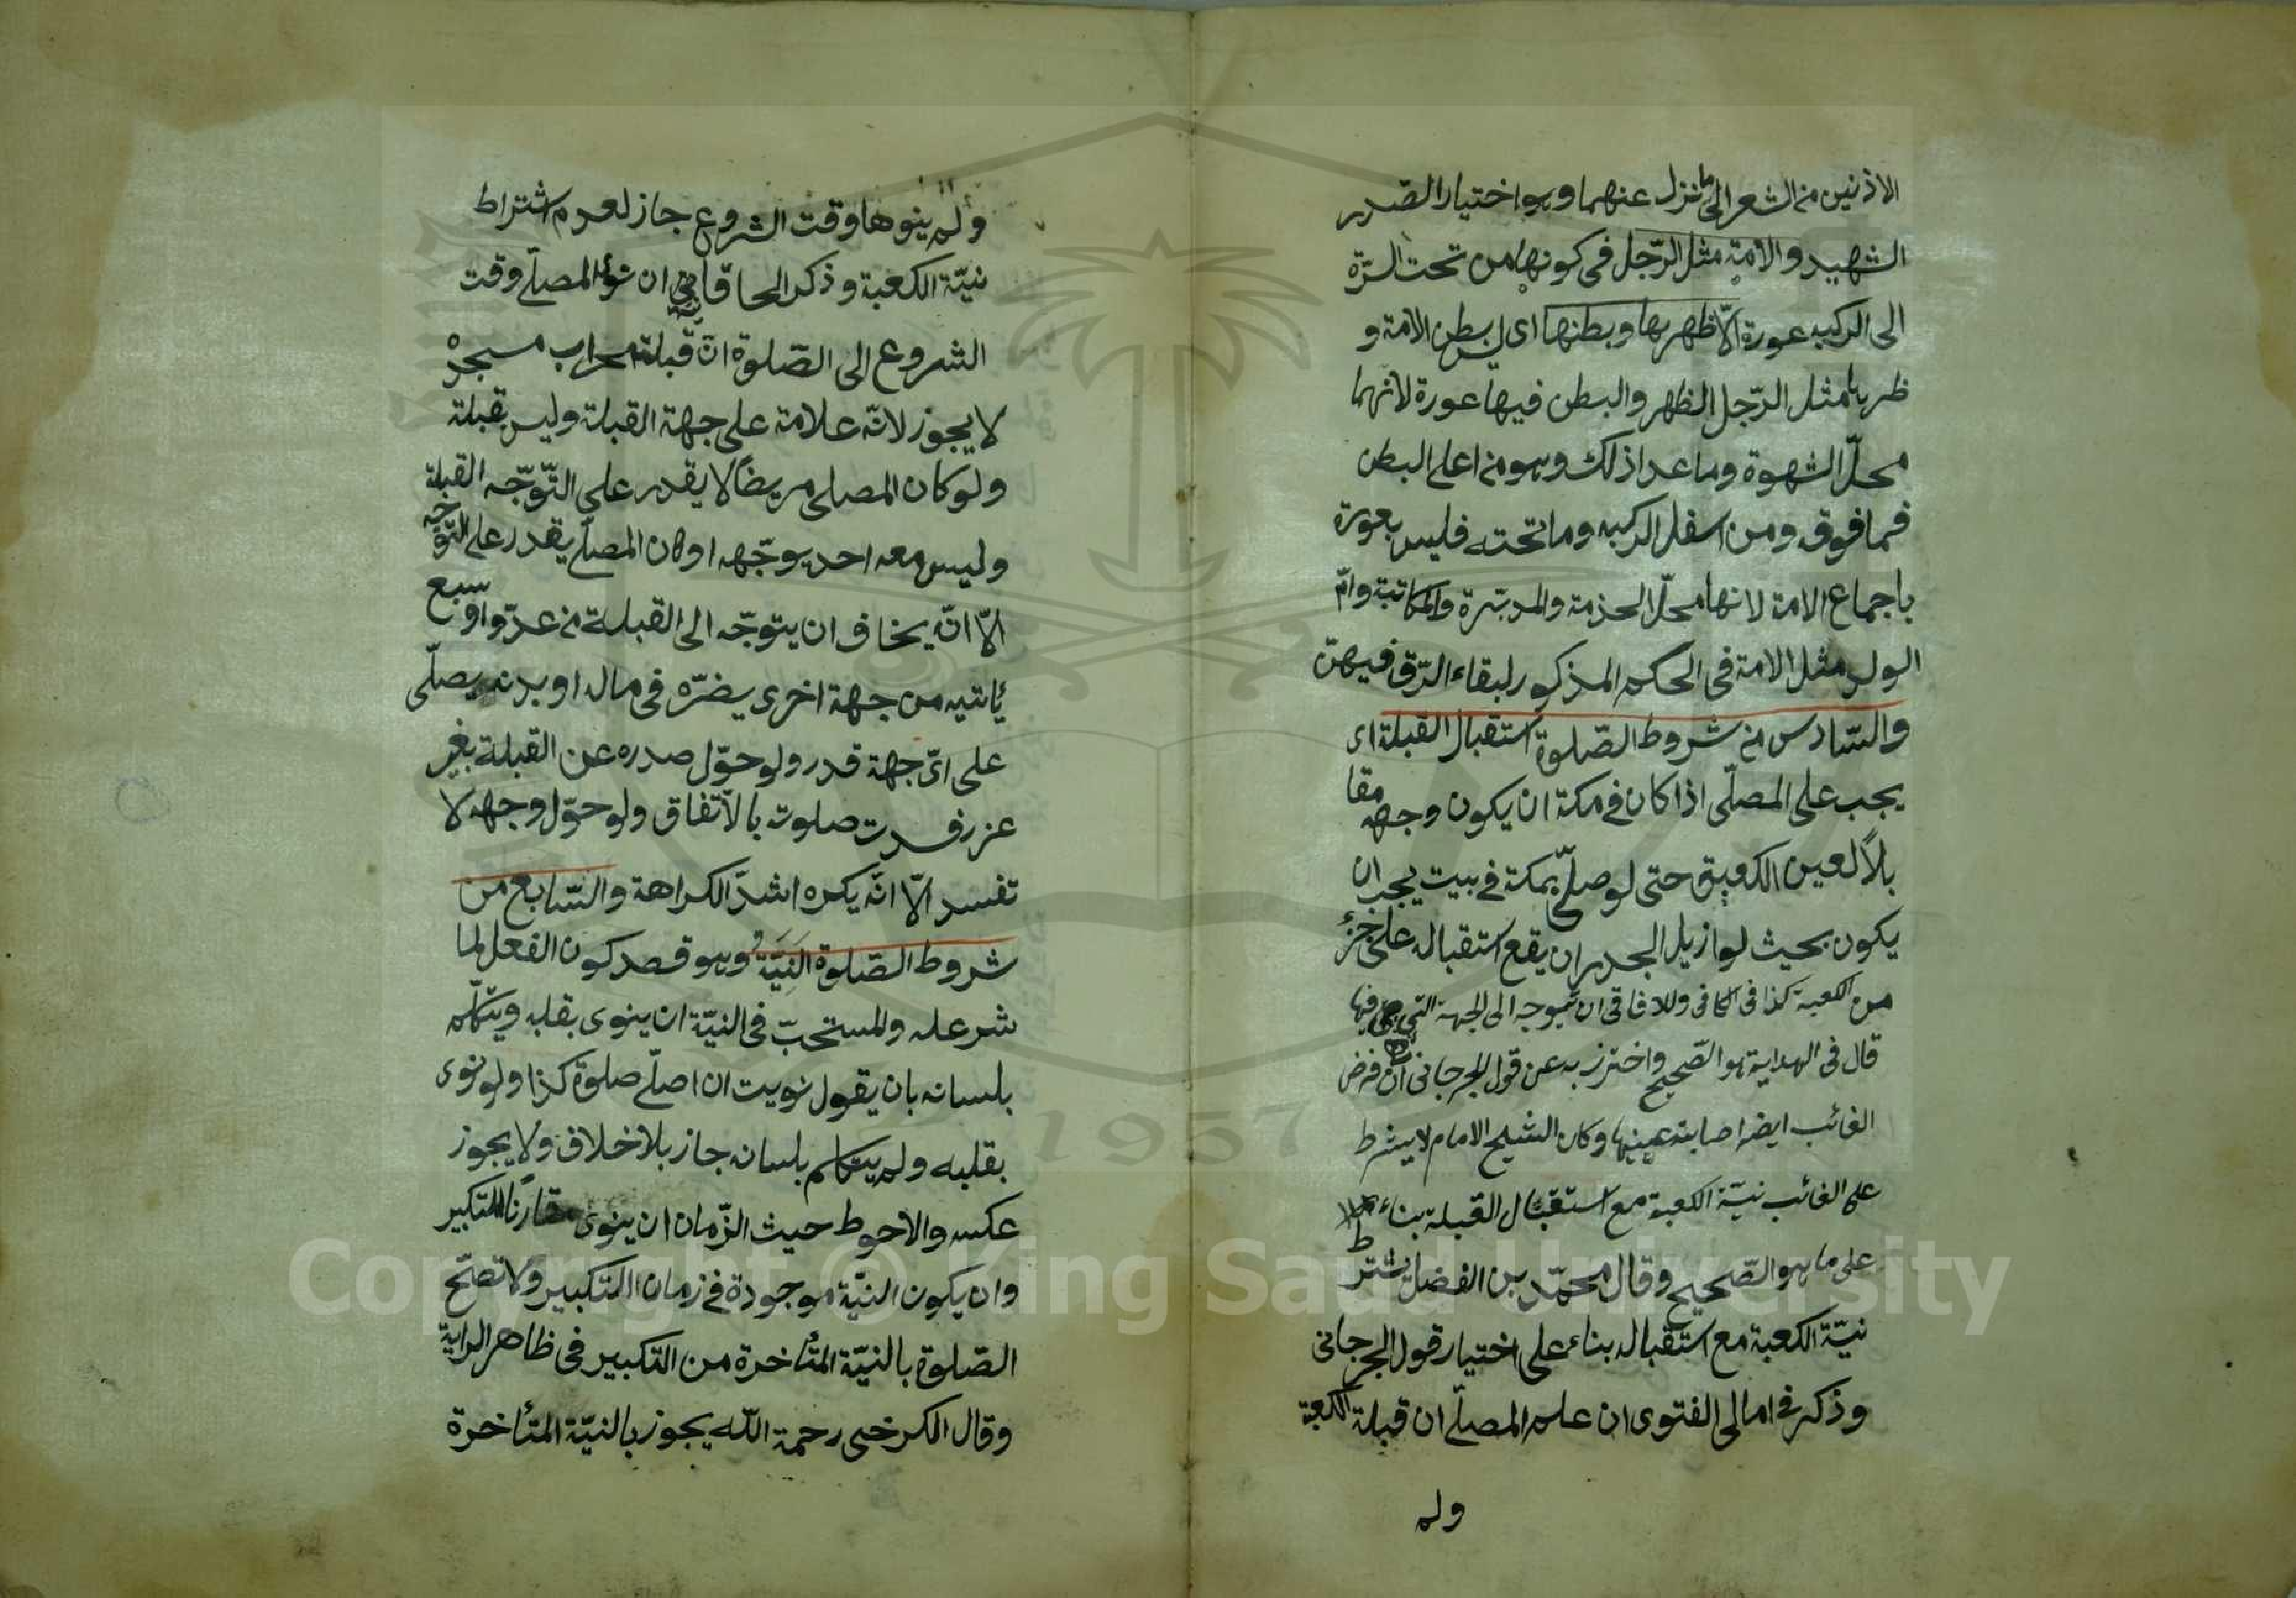 الاذنين من الشعر الى ما نزل عنهما وهو اختيار الصّدر
الشهيد والامة مثل الرّجل فى كونها من تحت السّرّة
الى الركبه عورة الّا ظهرها وبطنها اى ليس بطن الامة و
ظهرها مثل الرّجل الظهر والبطن فيها عورة لانهما
محلّ الشهوة وما عدا ذلك وهو من اعلى البطن
فما فوق ومن اسفل الركبه وما تحته فليس بعورة
باجماع الامة لانها محلّ الخدمة والمدبّرة والمكاتبة وامّ
الولد مثل الامة فى الحكم المذكور لبقاء الرّق فيهنّ
والسّادس من شروط الصّلوة استقبال القبلة اى
يجب على المصلّى اذا كان فى مكة ان يكون وجهه مقا
بلاً لعين الكعبة حتى لو صلّى بمكة فى بيت يجب ان
يكون بحيث لو ازيل الجدران يقع استقباله على جزء
من الكعبة كذا فى الكافى وللافاقى ان يتوجه الى الجهة التى هى فيها
قال فى الهداية هو الصّحيح واحترز به عن قول الجرجانى ان فرض
الغائب ايضا اصابة عينها وكان الشيخ الامام لا يشترط
على الغائب نيّة الكعبة مع استقبال القبلة بناء
على ما هو الصّحيح وقال محمّد بن الفضل يشترط
نيّة الكعبة مع استقباله بناء على اختيار قول الجرجانى
وذكر فى امالى الفتوى ان علم المصلّى ان قبلة الكعبة
ولم
ولم ينوها وقت الشروع جاز لعدم اشتراط
نيّة الكعبة وذكر الحاقانى ان نوى المصلّى وقت
الشروع الى الصّلوة انّ قبلة محراب مسجده
لا يجوز لانّه علامة على جهة القبلة وليس بقبلة
ولو كان المصلى مريضًا لا يقدر على التّوجّه القبلة
وليس معه احد يوجّهه او كان المصلّى يقدر على التّوجّه
الّا انّه يخاف ان يتوجّه الى القبلة من عدوّ او سبع
يأتيه من جهة اخرى يضرّه فى ماله او بدنه يصلّى
على اىّ جهة قدر ولو حوّل صدره عن القبلة بغير
عذر فسدت صلوته بالاتّفاق ولو حوّل وجهه لا
تفسد الّا انّه يكره اشدّ الكراهة والسّابع من
شروط الصّلوة النيّة وهو قصد كون الفعل لما
شرع له والمستحبّ فى النيّة ان ينوى بقلبه ويتكلّم
بلسانه بان يقول نويت ان اصلّى صلوة كذا ولو نوى
بقلبه ولم يتكلم بلسانه جاز بلا خلاف ولا يجوز
عكسه والاحوط حيث الزّمان ان ينوى مقارنًا للتكبير
وان يكون النيّة موجودة فى زمان التكبير ولا تصحّ
الصّلوة بالنيّة المتأخرة من التكبير فى ظاهر الراية
وقال الكرخى رحمة اللّه يجوز بالنيّة المتأخرة
1957
Copyright © King Saud University